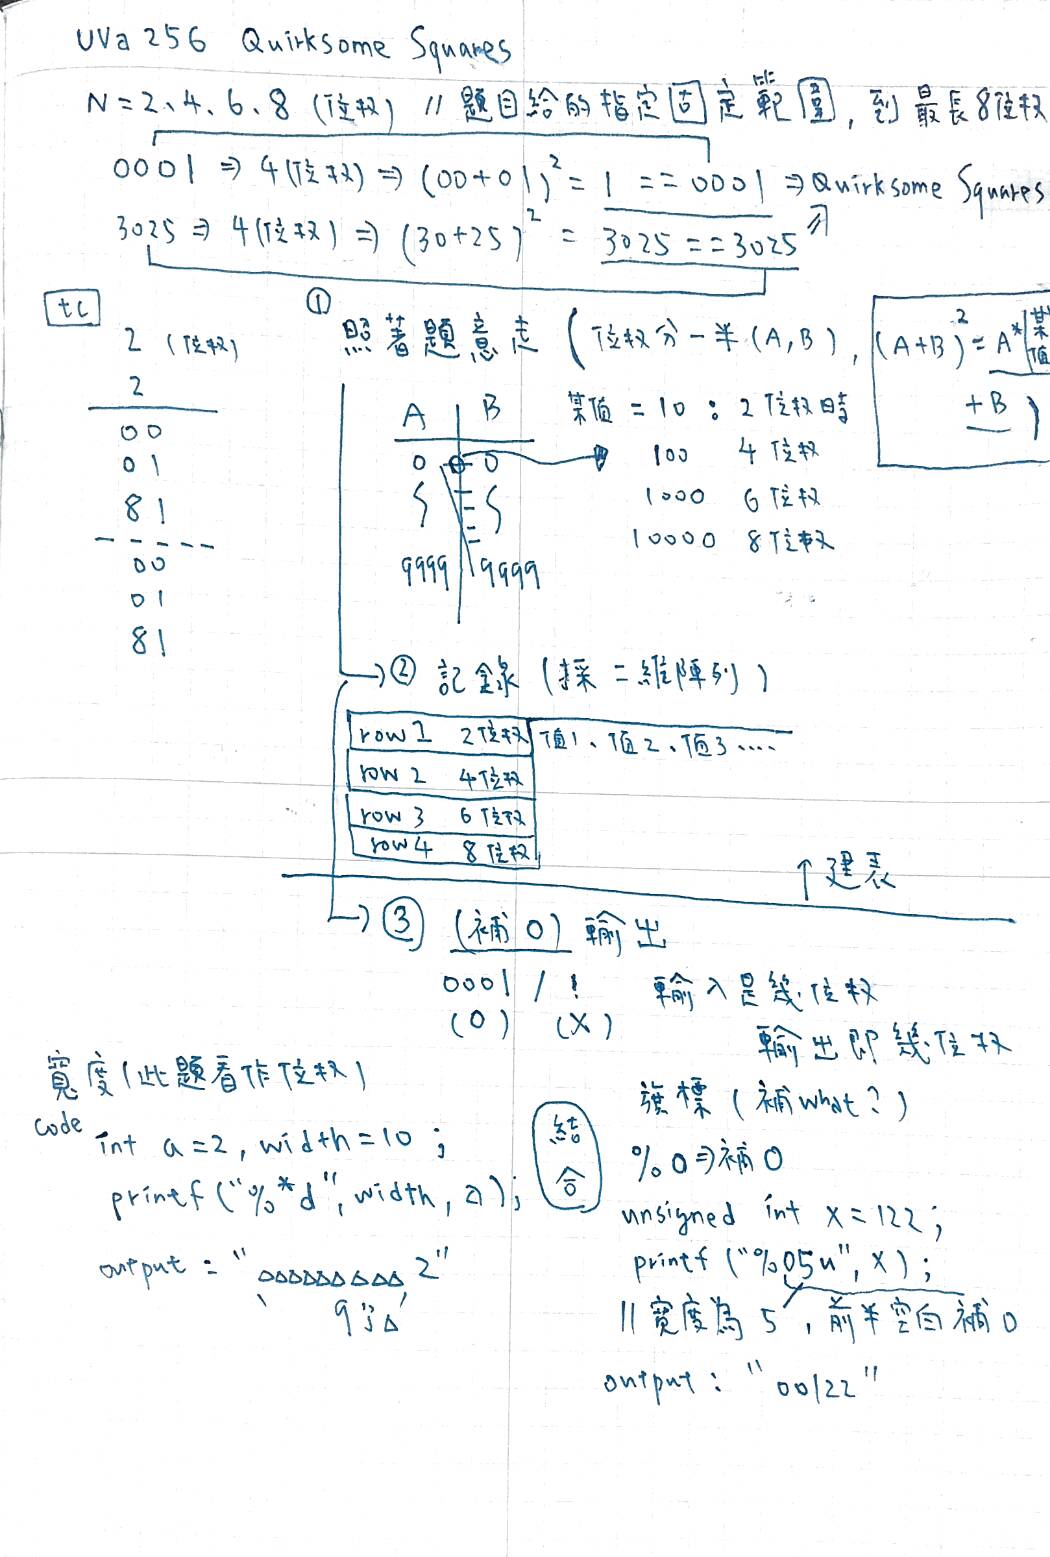 UVa 256 Quirksome Squares
N = 2、4、6、8 (位数) // 題目給的指定固定範圍, 到最長8位数
0001 ⇒ 4(位数) ⇒ (00+01)² = 1 == 0001 ⇒ Quirksome Squares
3025 ⇒ 4(位数) ⇒ (30+25)² = 3025 == 3025 ↗
tc
2 (位数)
2
00
01
81
-----
00
01
81
① 照著題意走 (位数分一半(A,B), (A+B)² = A*某值 + B)
A | B
0 0
9999 | 9999
某值 = 10 : 2位数時
100 4位数
1000 6位数
10000 8位数
→② 記錄 (採二維陣列)
row 1 2位数 值1、值2、值3....
row 2 4位数
row 3 6位数
row 4 8位数
↑建表
→③ (補0) 輸出
0001 / !
(O) (X)
輸入是幾位数
輸出即幾位数
寬度(此題看作位数)
code
int a=2, width=10;
printf("%*d", width, a);
output : "ΔΔΔΔΔΔΔΔΔ2"
9個Δ
結合
旗標 (補what?)
%0⇒補0
unsigned int x=122;
printf("%05u", x);
// 寬度為5, 前半空白補0
output : "00122"